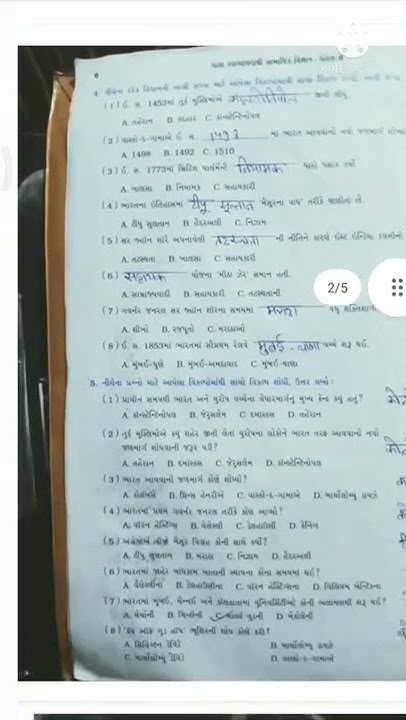 ૬ ધારા સ્વાધ્યાયપોથી સામાજિક વિજ્ઞાન : ધોરણ ૮
(1) ઈ. સ. 1453માં તુર્ક મુસ્લિમોએ કોન્સ્ટેન્ટિનોપલ જીતી લીધું.
A. તહેરાન B. કંદહાર C. કોન્સ્ટેન્ટિનોપલ
(2) વાસ્કો-દ-ગામાએ ઈ. સ. માં ભારત આવવાનો નવો જળમાર્ગ
A. 1498 B. 1492 C. 1510
(3) ઈ. સ. 1773માં બ્રિટિશ પાર્લમેન્ટે નિયામક ધારો પસાર કર્યો.
A. ખાલસા B. નિયામક C. સહાયકારી
(4) ભારતના ઈતિહાસમાં ટીપુ સુલતાન 'મૈસૂરના વાઘ' તરીકે જાણીતો છે.
A. ટીપુ સુલતાન B. હૈદરઅલી C. નિઝામ
(5) સર જ્હોન શોરે અપનાવેલી તટસ્થતા ની નીતિને કારણે ઈસ્ટ ઇન્ડિયા કંપનીનો
A. તટસ્થતા B. ખાલસા C. સહાયકારી
(6) યોજના 'મીઠા ઝેર' સમાન હતી.
A. સામ્રાજ્યવાદી B. સહાયકારી C. તટસ્થતાની
2/5
(7) ગવર્નર જનરલ સર જ્હોન શોરના સમયમાં મરાઠા વધુ શક્તિશાળી
A. શીખો B. રજપૂતો C. મરાઠાઓ
(8) ઈ. સ. 1853માં ભારતમાં સૌપ્રથમ રેલવે મુંબઈ - થાણા વચ્ચે શરૂ થઈ.
A. મુંબઈ-પુણે B. મુંબઈ-અમદાવાદ C. મુંબઈ-થાણા
5. નીચેના પ્રશ્નો માટે આપેલા વિકલ્પોમાંથી સાચો વિકલ્પ શોધી, ઉત્તર લખો :
(1) પ્રાચીન સમયથી ભારત અને યુરોપ વચ્ચેના વેપારમાર્ગનું મુખ્ય કેન્દ્ર કયું હતું?
A. કોન્સ્ટેન્ટિનોપલ B. જેરુસલેમ C. દમાસ્કસ D. તહેરાન
(2) તુર્ક મુસ્લિમોએ કયું શહેર જીતી લેતાં યુરોપના લોકોને ભારત તરફ આવવાનો નવો
જળમાર્ગ શોધવાની જરૂર પડી?
A. તહેરાન B. દમાસ્કસ C. જેરુસલેમ D. કોન્સ્ટેન્ટિનોપલ
(3) ભારત આવવાનો જળમાર્ગ કોણે શોધ્યો?
A. કોલંબસે B. પ્રિન્સ હેનરીએ C. વાસ્કો-દ-ગામાએ D. બાર્થોલોમ્યુ ડાયઝે
(4) ભારતમાં પ્રથમ ગવર્નર જનરલ તરીકે કોણ આવ્યો?
A. વૉરન હેસ્ટિંગ્સ B. વેલેસ્લી C. ડેલહાઉસી D. કેનિંગ
(5) અંગ્રેજોએ ત્રીજો મૈસૂર વિગ્રહ કોની સાથે કર્યો?
A. ટીપુ સુલતાન B. મરાઠા C. નિઝામ D. હૈદરઅલી
(6) ભારતમાં જાહેર બાંધકામ ખાતાની સ્થાપના કોના સમયમાં થઈ?
A. વેલેસ્લીના B. ડેલહાઉસીના C. વૉરન હેસ્ટિંગ્સના D. વિલિયમ બેન્ટિકના
(7) ભારતમાં મુંબઈ, ચેન્નઈ અને કોલકાતામાં યુનિવર્સિટીઓ કોની ભલામણથી શરૂ થઈ?
A. મેયોની B. મિન્ટોની C. ચાર્લ્સ વુડની D. મેકોલેની
(8) 'કેપ ઑફ ગુડ હોપ' ભૂશિરની શોધ કોણે કરી?
B. બાર્થોલોમ્યુ ડાયઝે
D. વાસ્કો-દ-ગામાએ